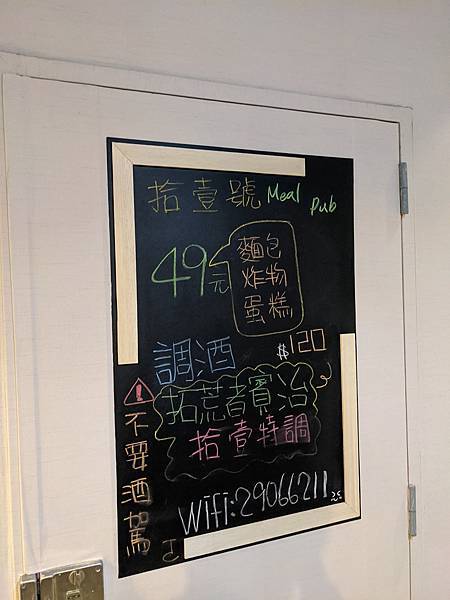 拾壹號 Meal Pub
49元
麵包
炸物
蛋糕
調酒 $120
拓荒者賓治
拾壹特調
⚠不要酒駕
Wifi:29066211